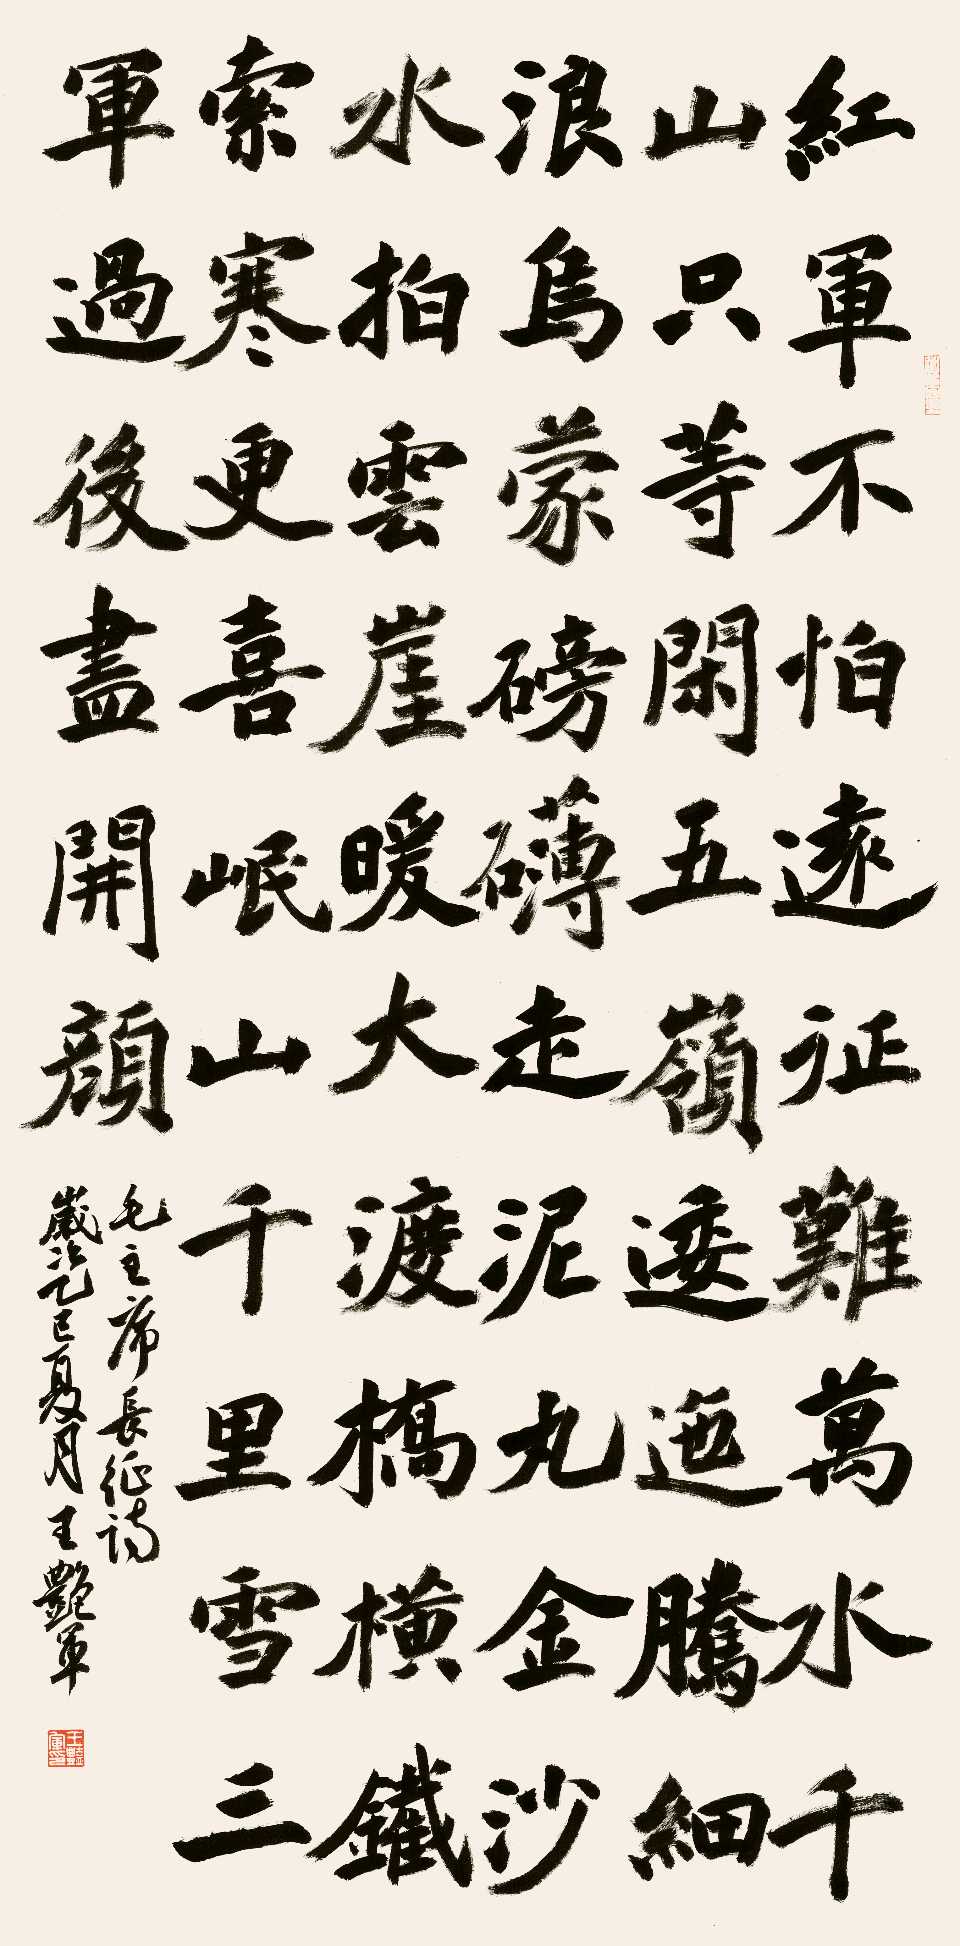 紅軍不怕遠征難萬水千
山只等閑五嶺逶迤騰細
浪烏蒙磅礴走泥丸金沙
水拍雲崖暖大渡橋橫鐵
索寒更喜岷山千里雪三
軍過後盡開顏
毛主席長征詩
歲次乙巳夏月王艷軍